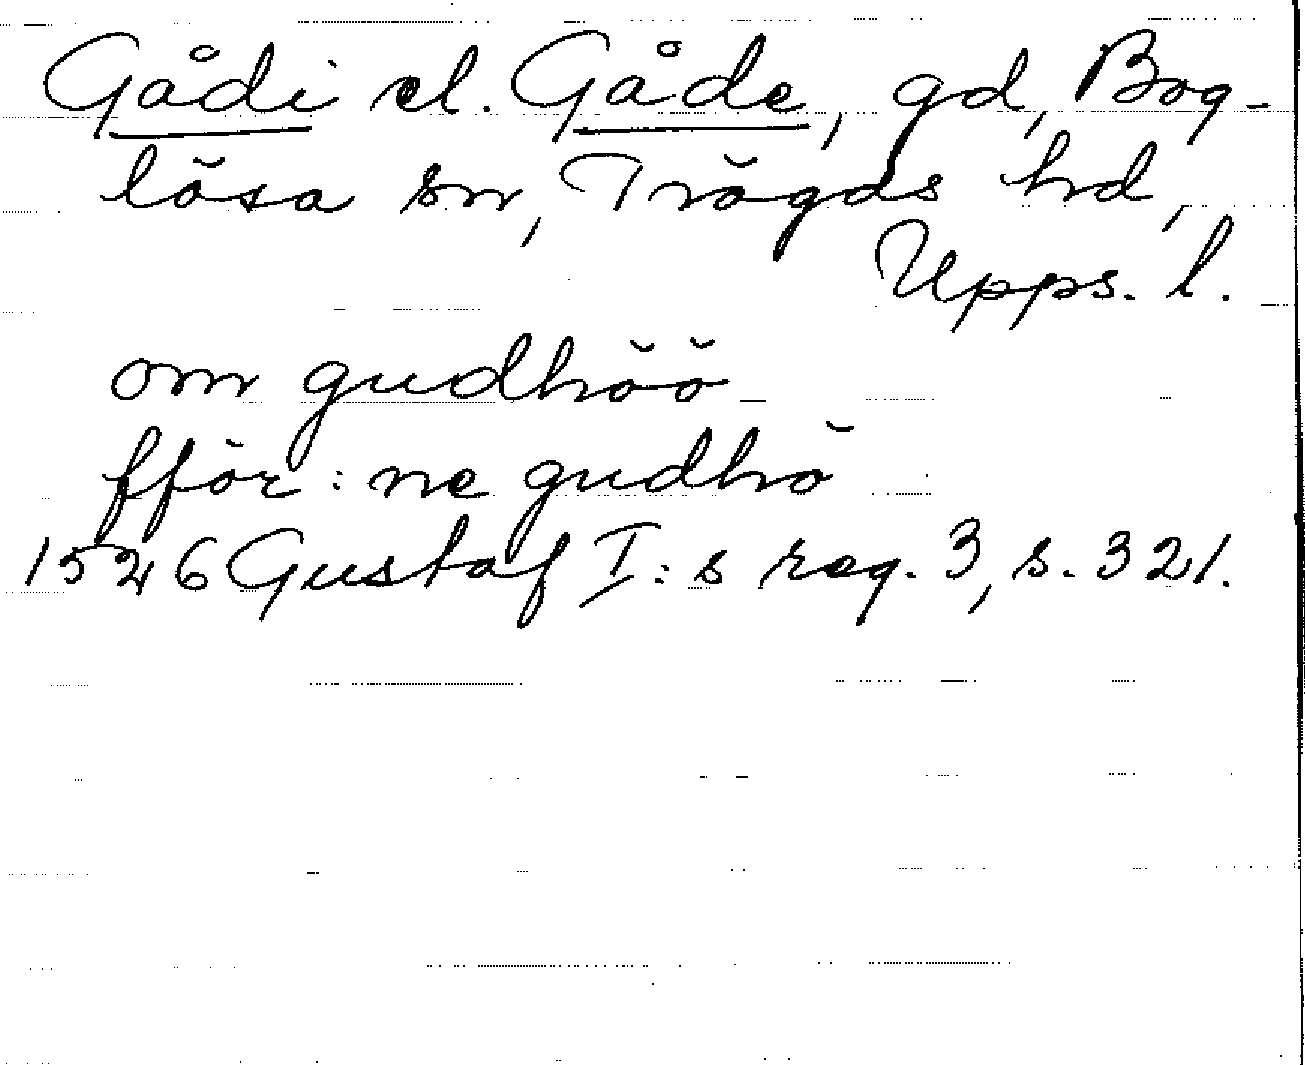 Gådi el. Gåde, gd, Bog-
lösa sn, Trögds hd,
Upps. l.
om gudhöö
fför: ne gudhö
1526 Gustaf I:s reg. 3, s. 321.